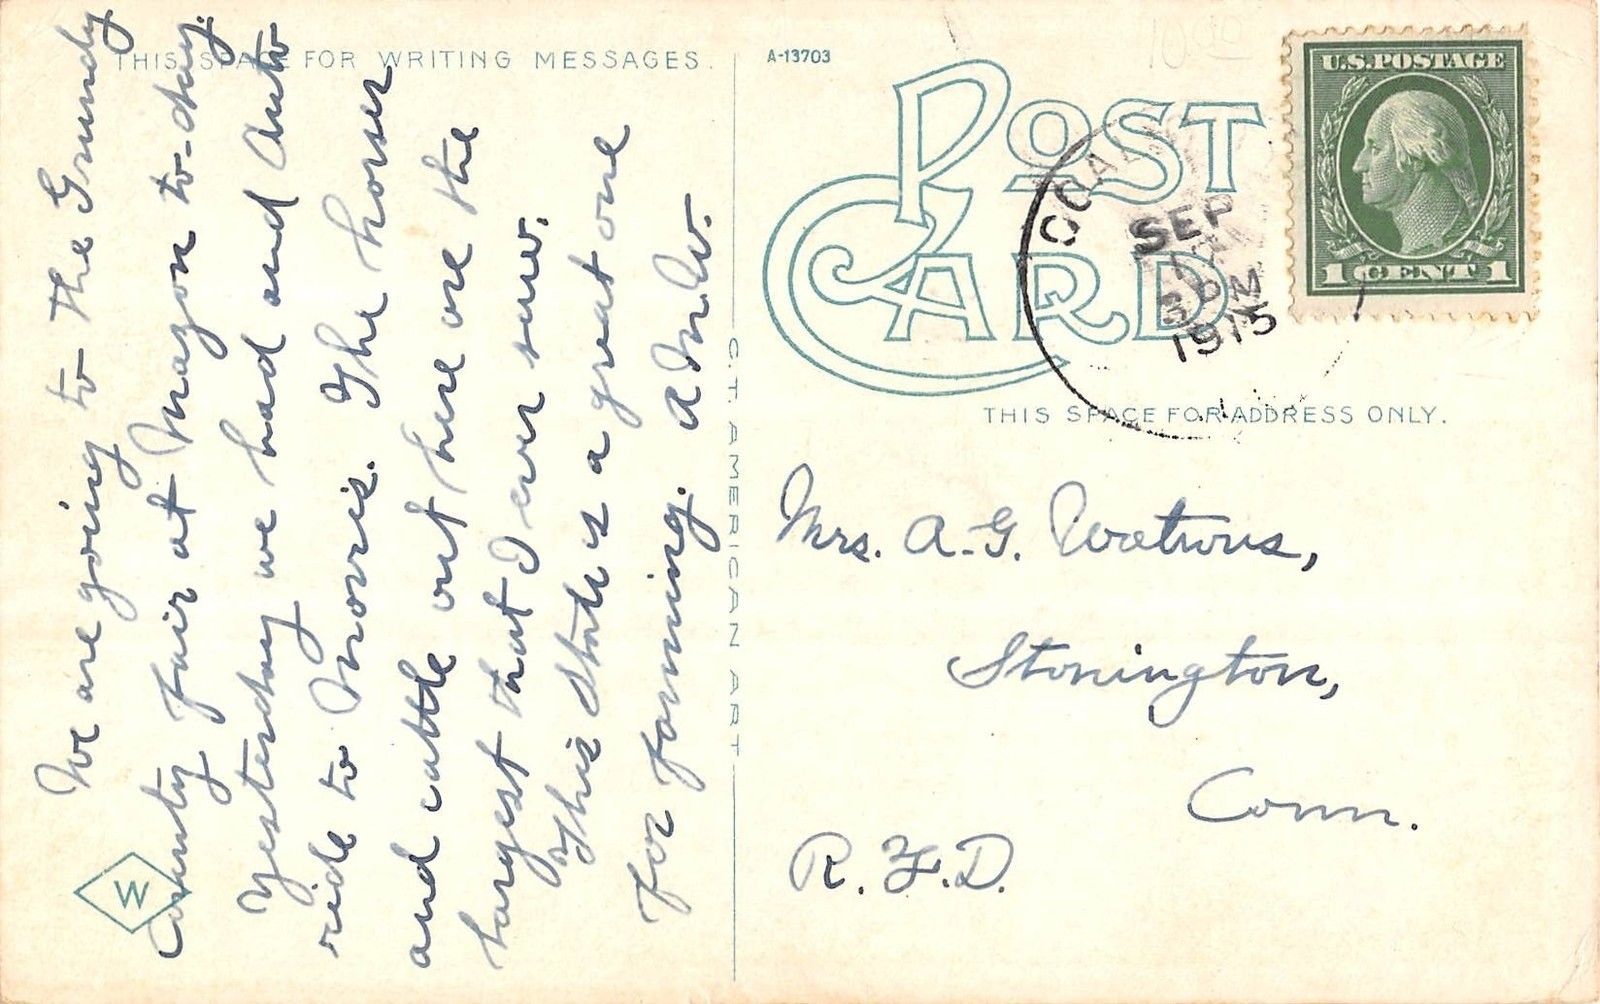 THIS SPACE FOR WRITING MESSAGES.
We are going to the Grundy
County fair at Mazon to-day.
Yesterday we had and Auto
ride to Morris. The horses
and cattle out here are the
largest that I ever saw.
This State is a great one
for farming. A.M.W.
C.T. AMERICAN ART
A-13703
POST
CARD
SEP
PM
1915
U.S. POSTAGE
1 CENT 1
THIS SPACE FOR ADDRESS ONLY.
Mrs. A.G. Watrous,
Stonington,
Conn.
R.F.D.